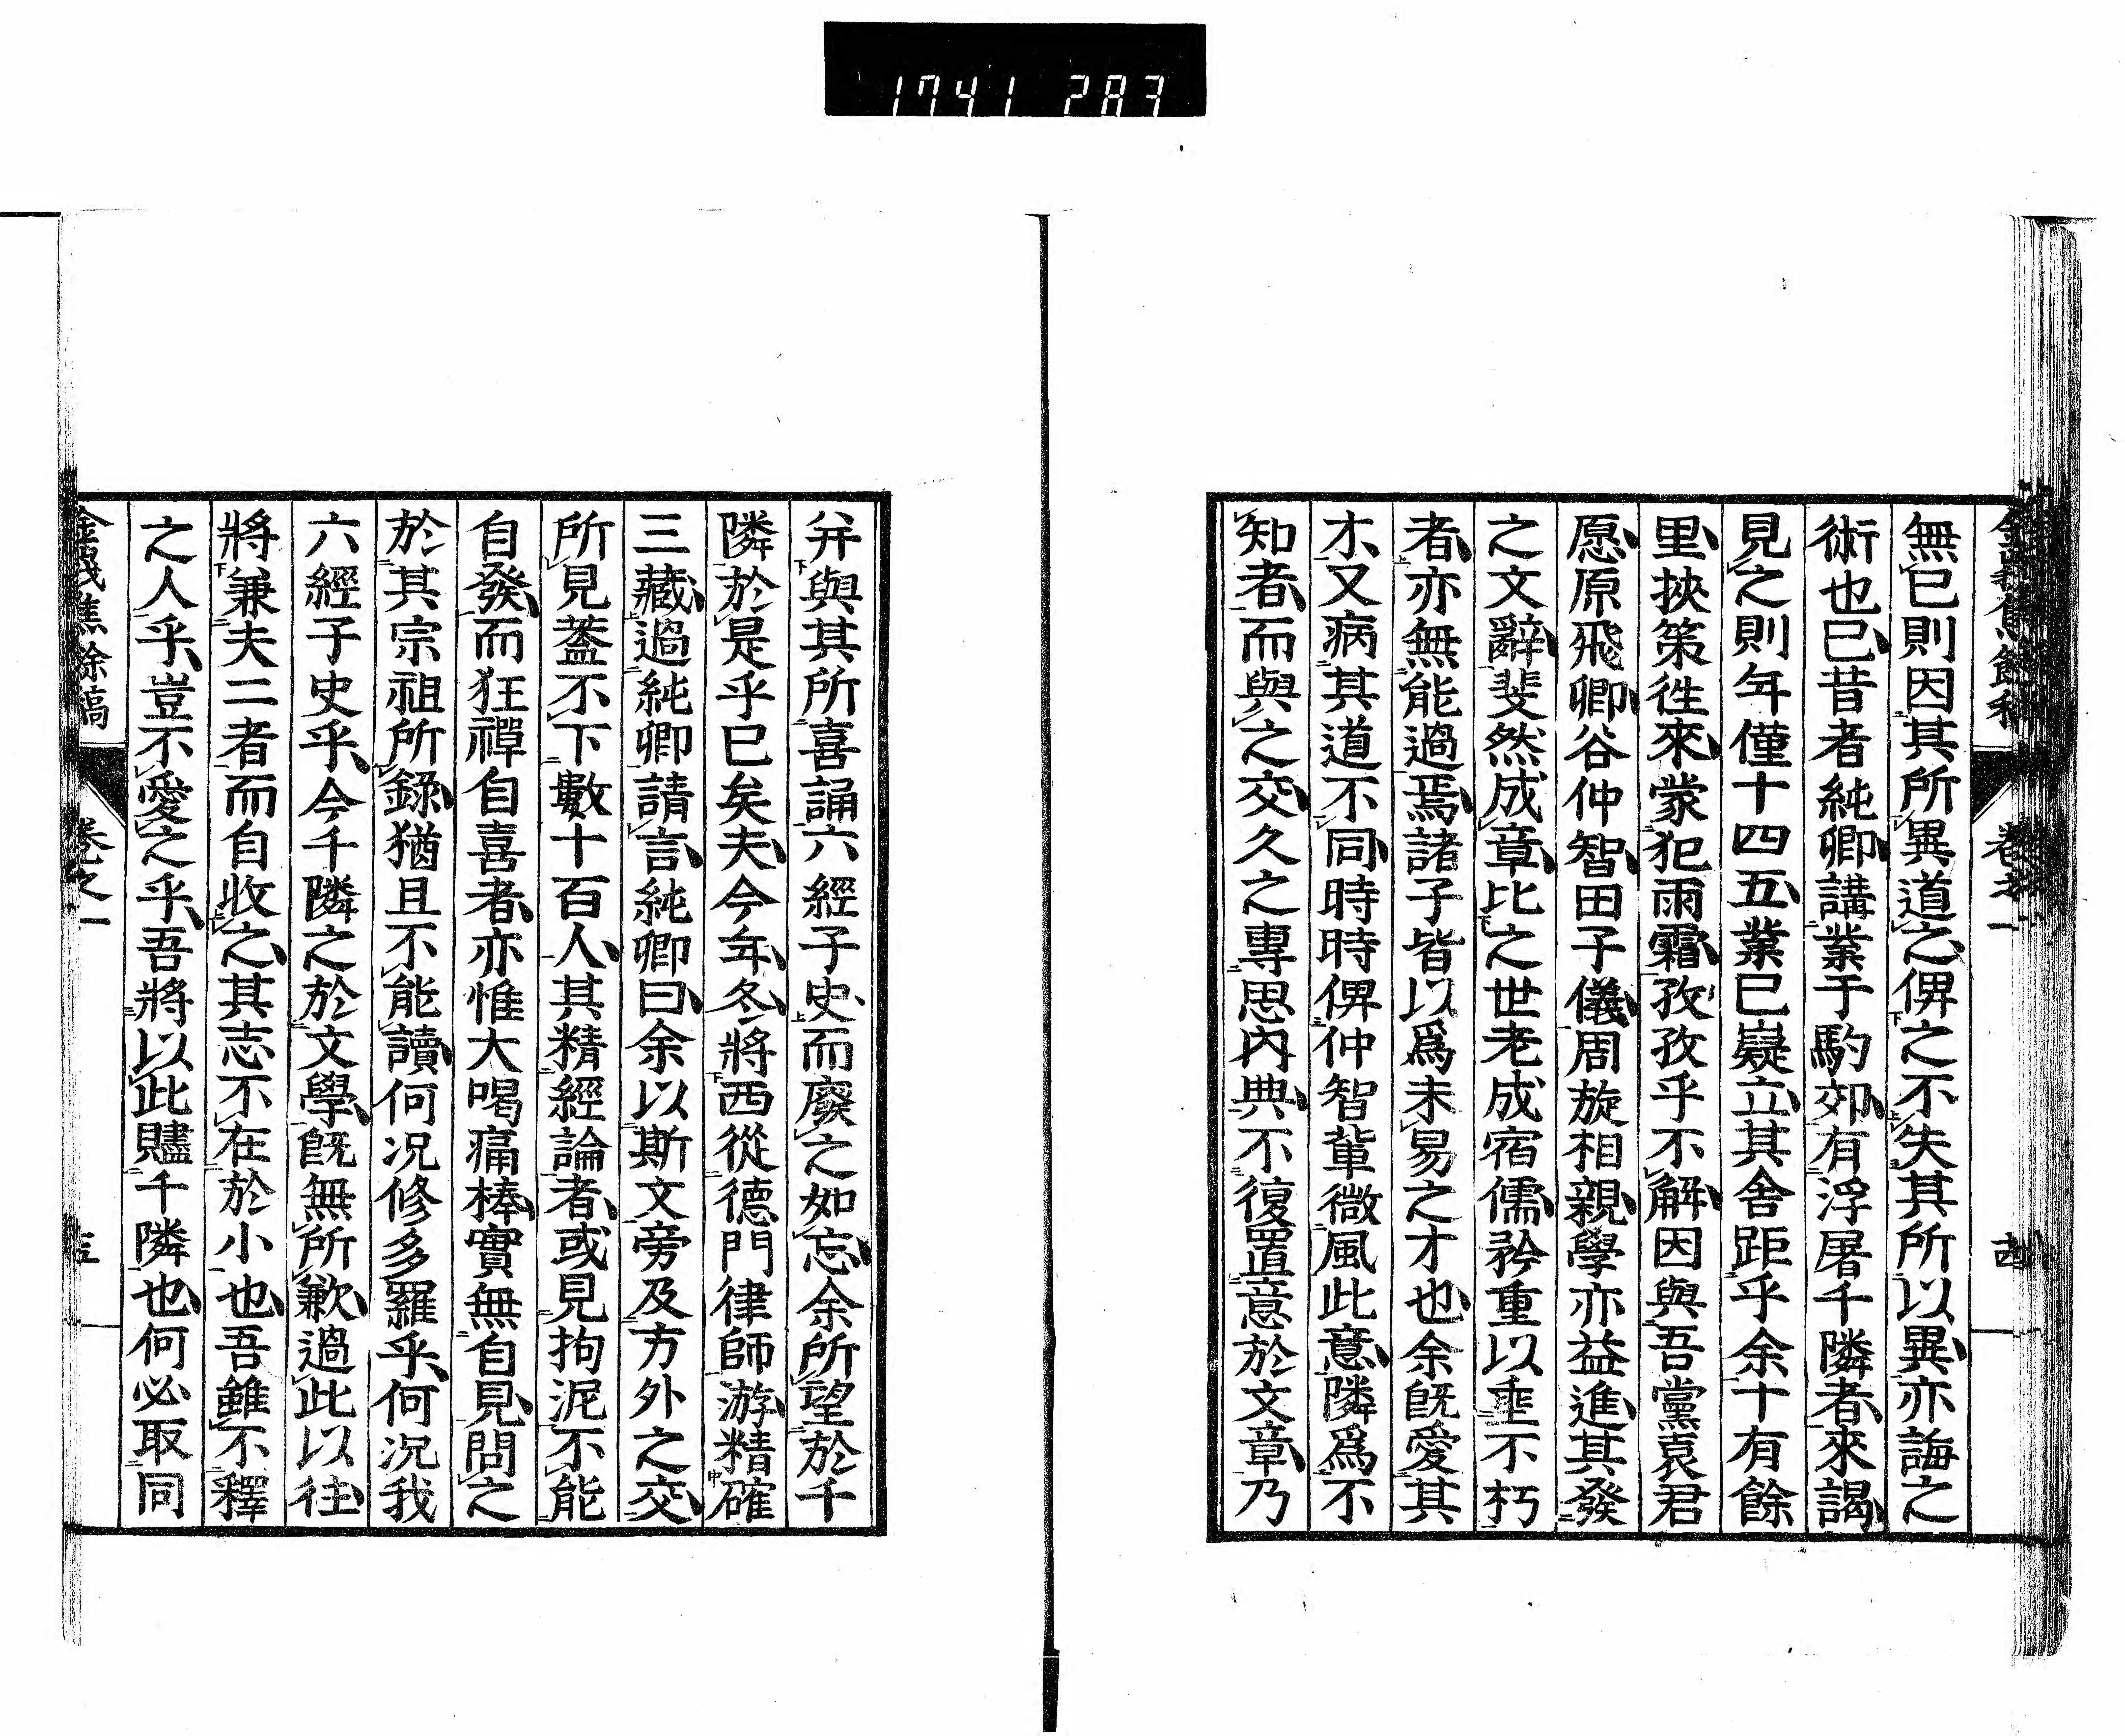 1741 283
無已則因其所異道之俾之不失其所以異亦誨之
術也已昔者純卿講業于駒郊有浮屠千隣者來謁
見之則年僅十四五業已嶷立其舍距乎余十有餘
里挾策徃來蒙犯雨霜孜孜乎不解因與吾黨袁君
愿原飛卿谷仲智田子儀周旋相親學亦益進其發
之文辭斐然成章比之世老成宿儒矜重以埀不朽
者亦無能過焉諸子皆以爲未易之才也余既愛其
才又病其道不同時時俾仲智輩微風此意隣爲不
知者而與之交久之專思內典不復置意於文章乃
卷之一
幷與其所喜誦六經子史而廢之如忘余所望於千
隣於是乎已矣夫今年冬將西從德門律師游精確
三藏過純卿請言純卿曰余以斯文旁及方外之交
所見蓋不下數十百人其精經論者或見拘泥不能
自發而狂禪自喜者亦惟大喝痛棒實無自見問之
於其宗祖所錄猶且不能讀何况修多羅乎何况我
六經子史乎今千隣之於文學既無所歉過此以往
將兼夫二者而自收之其志不在於小也吾雖不釋
之人乎豈不愛之乎吾將以此贐千隣也何必取同
餘稿 卷之一